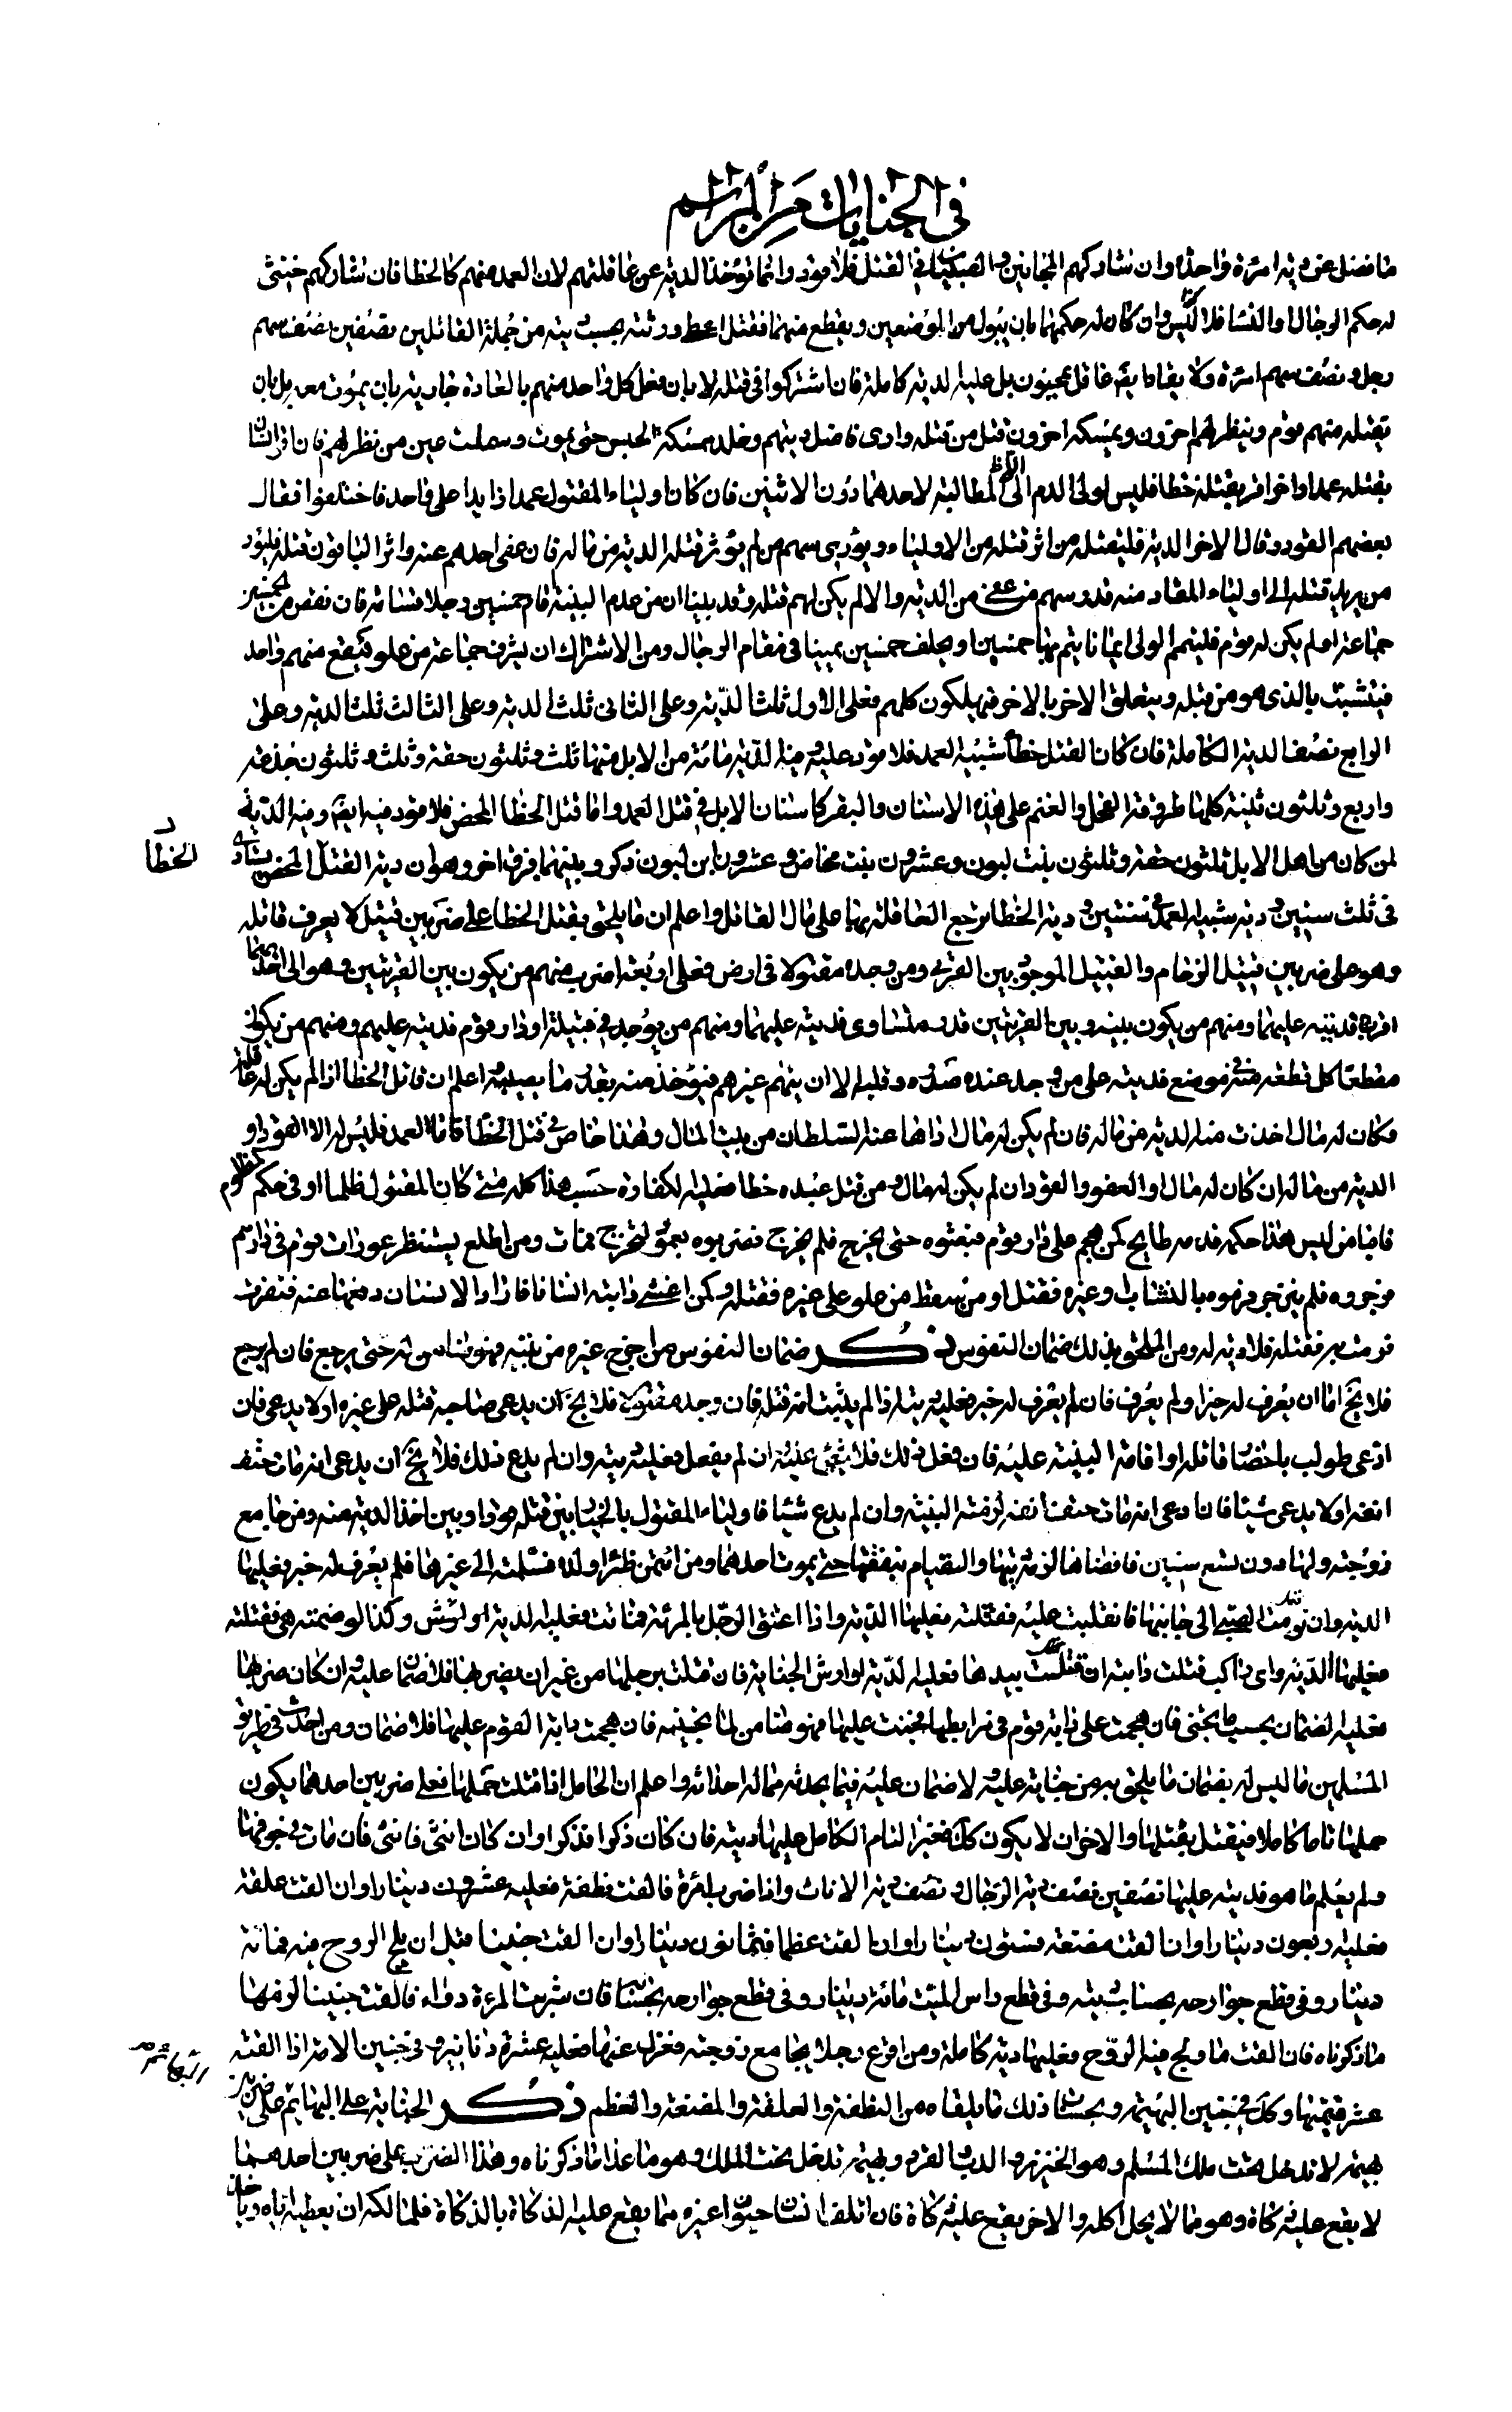 في الجنايات من المراسم
ما فضل عن دية امرأة واحدة وان شاركهم المجانين والصبيان في القتل فلا قود وانما تؤخذ الدية عن عاقلتهم لان العمد منهم كالخطا فان شاركهم خنثى
له حكم الرجال او النساء فلا لبس وان كان له حكمهما بان يبول من الموضعين ويقطع منهما فقتل اعطى ورثته بحسب ديته من جملة القاتلين نصفين نصف سهم
رجل ونصف سهم امرأة ولا يقاد ايضا عاقل بمجنون بل عليه الدية كاملة فان اشتركوا في قتله لا بان فعل كل واحد منهم بالعادة جارية بان يموت معه بل بان
يقتله منهم قوم وينظر لهم اخرون ويمسكه اخرون قتل من قتله وادى فاضل ديتهم وخلد ممسكه الحبس حتى يموت وسملت عين من نظر لهم فان اقر انسان
بقتله عمدا واخر اقر بقتله خطا فليس لولي الدم الا المطالبة لاحدهما دون الاثنين فان كان اولياء المقتول عمدا زايدا على واحد فاختلفوا فقال
بعضهم القود وقال الاخر الدية فليقتله من اثر قتله من الاولياء ويؤدي سهم من لم يؤثر قتله الدية من ماله فان عفى احدهم عنه واثر الباقون قتله فليؤد
من يريد قتله الى اولياء المقاد منه قدر سهم من عفى من الدية والا لم يكن لهم قتله وقد بينا ان من عدم البينة اقام خمسين رجلا قسامة فان نقص من الخمسين
جماعة او لم يكن له قوم فليتمم الولي ايمانا يتم بها خمسين او يحلف خمسين يمينا في مقام الرجال ومن الاشتراك ان يشرف جماعة من علو فيقع منهم واحد
فيتشبث بالذي هو من قبله ويتعلق الاخر بالاخر فيهلكون كلهم فعلى الاول ثلثا الدية وعلى الثاني ثلث الدية وعلى الثالث ثلثا الدية وعلى
الرابع نصف الدية الكاملة فان كان القتل خطأ شبيه العمد فلا قود عليه وفيه الدية مائة من الابل منها ثلث وثلثون حقة وثلث وثلثون جذعة
واربع وثلثون ثنية كلها طروقة الفحل والغنم على هذه الاسنان والبقر كاسنان الابل في قتل العمد واما قتل الخطا المحض فلا قود فيه ايضا وفيه الدية
لمن كان من اهل الابل ثلثون حقة وثلثون بنت لبون وعشرون بنت مخاض وعشرون ابن لبون ذكر وبينهما فرق اخر وهو ان دية القتل المحض يستادى
الخطأ
في ثلث سنين ودية شبيه العمد في سنتين ودية الخطا ترجع العاقلة بها على مال القاتل واعلم ان ما يلحق بقتل الخطا على ضربين قتيل لا يعرف قاتله
وهو على ضربين قتيل الزحام والقتيل الموجود بين القرى ومن وجد مقتولا في ارض فعلى اربعة اضرب منهم من يكون بين القريتين وهو الى احديهما
اقرب فديته عليها ومنهم من يكون بينه وبين القريتين قدر متساوى فديته عليهما ومنهم من يوجد في قبيلة او دار قوم فديته عليهم ومنهم من يكون
مقطعا كل قطعة منه في موضع فديته على من وجد عنده صدره وقلبه الا ان يتهم غيرهم فيؤخذ منه بقدر ما يصيبه واعلم ان قاتل الخطا اذا لم يكن له عاقلة
وكان له مال اخذت منه الدية من ماله فان لم يكن له مال اداها عنه السلطان من بيت المال وهذا خاص في قتل الخطا فاما العمد فليس له الا القود او
الدية من ماله ان كان له مال او العفو والقود ان لم يكن له مال ومن قتل عبده خطا فعليه الكفارة حسب هذا كله متى كان المقتول ظلما او في حكم المظلوم
فاما من ليس هذا حكمه فدمه طايح كمن هجم على دار قوم فبغتوه حتى يخرج فلم يخرج فضربوه بعمود ليخرج فمات ومن اطلع ليستنظر عورات قوم في دارهم
فزجروه فلم ينزجر فرموه بالنشاب او غيره فقتل او من سقط من علو على غيره فقتله وكمن اغشي دابته انسانا فاراد الانسان دفعها عنه فنفرت
فرمت به فقتلته فلا دية له ومن الملحق بذلك ضمان النفوس ذكر ضمان النفوس من اخرج غيره من بيته فهو ضامن له حتى يرجع فان لم يرجع
فلا يخ اما ان يعرف له خبر او لم يعرف فان لم يعرف له خبر فعليه ديته اذا لم يثبت انه قتله فان وجد مقتولا فلا يخ ان يدعى صاحبه قتله على غيره او لا يدعى فان
ادعى طولب باحضار قاتله او اقامة البينة عليه فان فعل ذلك فلا شيء عليه ان لم يفعل فعليه ديته وان لم يدع ذلك فلا يخ ان يدعى انه مات حتف
انفه او لا يدعى شيئا فان ادعى انه مات حتف انفه لزمته البينة وان لم يدع شيئا فاولياء المقتول بالخيار بين قتله قودا وبين اخذ الدية منه ومن جامع
زوجته ولها دون تسع سنين فافضاها لزمه ديتها والقيام بنفقتها حتى يموت احدهما ومن ائتمن ظئرا ولده فسلمته الى غيرها فلم يعرف له خبر فعليها
الدية وان نومت الصبي الى جانبها فانقلبت عليه فقتلته فعليها الدية واذا اعتنق الرجل بالمرئة فماتت فعليه الدية او الارش وكذا لو ضمته هي فقتلته
فعليها الدية واي راكب قتلت دابته ان قتلت بيدها فعليه الدية او ارش الجناية فان قتلت برجلها من غير ان يضربها فلا ضمان عليه وان كان ضربها
فعليه الضمان بحسب ما تجنى فان هجمت على دابة قوم في مرابطها فجنت عليها فهو ضامن لما تجنيه فان هجمت دابة القوم عليها فلا ضمان ومن احدث في طريق
المسلمين ما ليس له يضمان ما يلحق به من جناية عليه ولا ضمان عليه فيما يحدثه مما له احداثه واعلم ان الحامل اذا قتلت حملها فعلى ضربين احدهما يكون
حملها تاما كاملا فيقتل بقتلها والاخر ان لا يكون كك فغير التام الكامل عليها ديته فان كان ذكرا فذكرا وان كان انثى فانثى فان مات في جوفها
ولم يعلم ما هو فديته عليها نصفين نصف دية الرجال ونصف دية الاناث واذا ضرب امرأة فالقت نطفة فعليه عشرون دينارا وان القت علقة
فعليه اربعون دينارا وان القت مضغة فستون دينارا وان القت عظما فثمانون دينارا وان القت جنينا قبل ان يلج الروح فيه فمائة
دينار وفي قطع جوارحه بحساب ديته وفي قطع راس الميت مائة دينار وفي قطع جوارحه بحسابها فان شربت المرءة دواء فالقت جنينا لزمها
ما ذكرناه فان القت ما ولج فيه الروح فعليها دية كاملة ومن افزع رجلا يجامع زوجته فعزل عنها فعليه عشرة دنانير وفي جنين الامة اذا القته
عشر قيمتها وكك في جنين البهيمة وبحساب ذلك ما يلقاه من النطفة والعلقة والمضغة والعظم ذكر الجناية على البهائم على ضربين
بهيمة لا تدخل تحت ملك المسلم وهو الخنزير والدب والقرد وبهيمة تدخل تحت الملك وهو ما عدا ما ذكرناه وهذا الضرب على ضربين احدهما
لا يقع عليه ذكاة وهو مما لا يحل اكله والاخر يقع عليه ذكاة فان اتلف انسان حيوان غيره مما يقع عليه الذكاة بالذكاة فلمالكه ان يعطيه اياه وياخذ